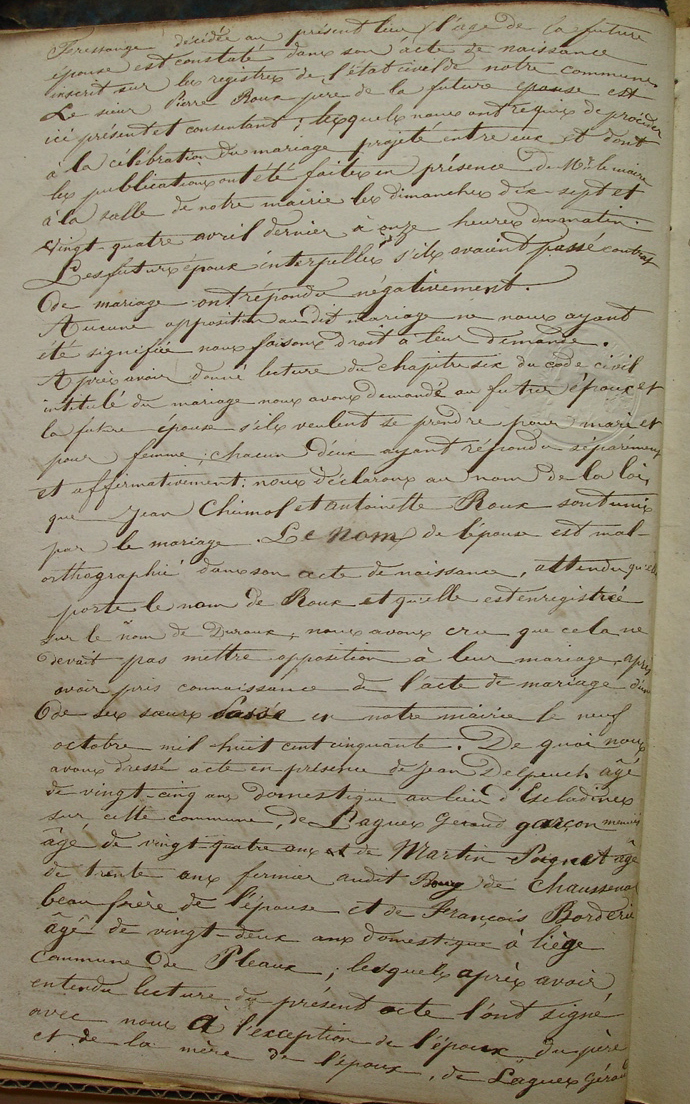 décédée au présent lieu l'age de la future
épouse est constaté dans son acte de naissance
inscrit sur les registres de l'état civil de notre commune
Le sieur Pierre Roux père de la future épouse est
ici présent et consentant ; lesquels nous ont requis de procéder
à la célébration du mariage projeté entre eux et dont
les publications ont été faites en présence de Mr le maire
à la salle de notre mairie les dimanches dix-sept et
vingt-quatre avril dernier à onze heures du matin.
Les futurs époux interpellés s'ils avaient passé contrat
de mariage ont répondu négativement.
Aucune opposition au dit mariage ne nous ayant
été signifiée nous faisons droit à leur demande.
Après avoir donné lecture du chapitre six du code civil
intitulé du mariage nous avons demandé au futur époux et
la future épouse s'ils veulent se prendre pour mari et
pour femme ; chacun d'eux ayant répondu séparément
et affirmativement : nous déclarons au nom de la loi,
que Jean Chumol et antoinette Roux sont unis
par le mariage. Le nom de l'épouse est mal-
orthographié dans son acte de naissance, attendu qu'elle
porte le nom de Roux et qu'elle est enregistrée
sur le nom de Duroux, nous avons cru que cela ne
devait pas mettre opposition à leur mariage, après
avoir pris connaissance de l'acte de mariage d'une
de ses sœurs passé en notre mairie le neuf
octobre mil huit cent cinquante. De quoi nous
avons dressé acte en présence de Jean Delpeuch âgé
de vingt-cinq ans domestique au lieu d'Escladines
sur cette commune, de Laquex Geraud garçon
âgé de vingt-quatre ans et de Martin âgé
de trente ans fermier audit Bourg de Chaussenac
beau frère de l'épouse et de François Borderie
âgé de vingt-deux ans domestique à liège
commune de Pleaux ; lesquels après avoir
entendu lecture du présent acte l'ont signé
avec nous à l'exception de l'époux, du père
et de la mère de l'époux, de Laquex Géraud